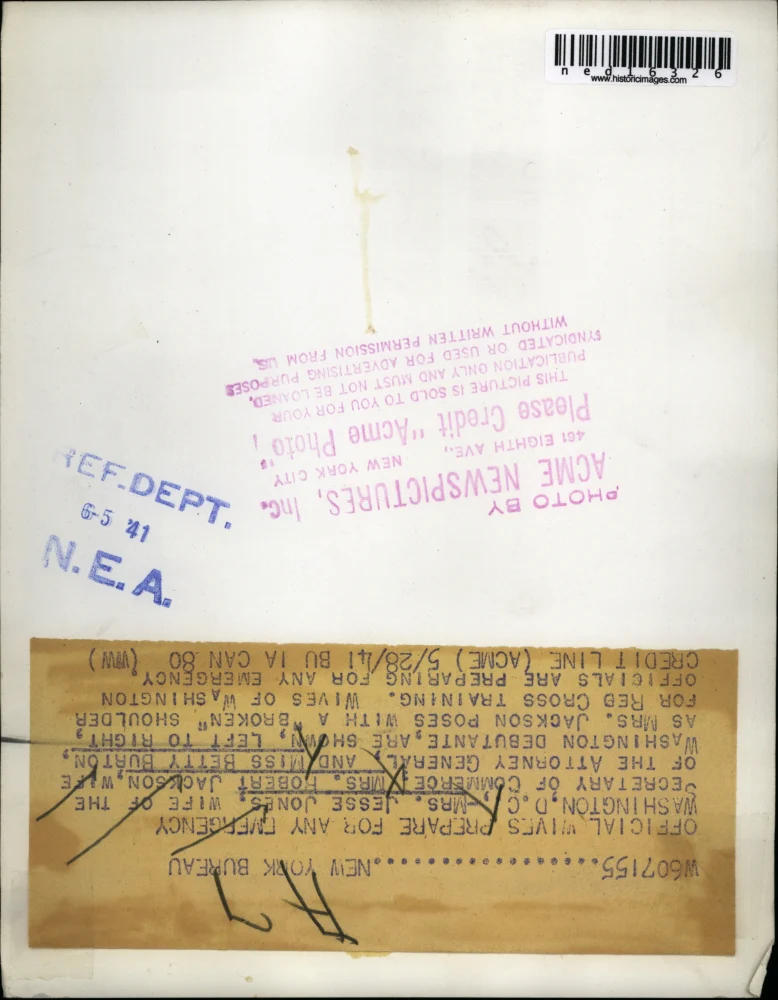 ned16326
www.historicimages.com
PHOTO BY
ACME NEWSPICTURES, Inc.
461 EIGHTH AVE., NEW YORK CITY
Please Credit "Acme Photo"
THIS PICTURE IS SOLD TO YOU FOR YOUR
PUBLICATION ONLY AND MUST NOT BE LOANED,
SYNDICATED OR USED FOR ADVERTISING PURPOSES
WITHOUT WRITTEN PERMISSION FROM US.
REF. DEPT.
6-5 '41
N.E.A.
#7
W607155..................NEW YORK BUREAU
OFFICIAL WIVES PREPARE FOR ANY EMERGENCY
WASHINGTON, D.C.--MRS. JESSE JONES, WIFE OF THE
SECRETARY OF COMMERCE, MRS. ROBERT JACKSON, WIFE
OF THE ATTORNEY GENERAL, AND MISS BETTY BURTON,
WASHINGTON DEBUTANTE, ARE SHOWN, LEFT TO RIGHT,
AS MRS. JACKSON POSES WITH A "BROKEN" SHOULDER
FOR RED CROSS TRAINING. WIVES OF WASHINGTON
OFFICIALS ARE PREPARING FOR ANY EMERGENCY.
CREDIT LINE (ACME) 5/28/41 BU IA CAN 80 (WW)